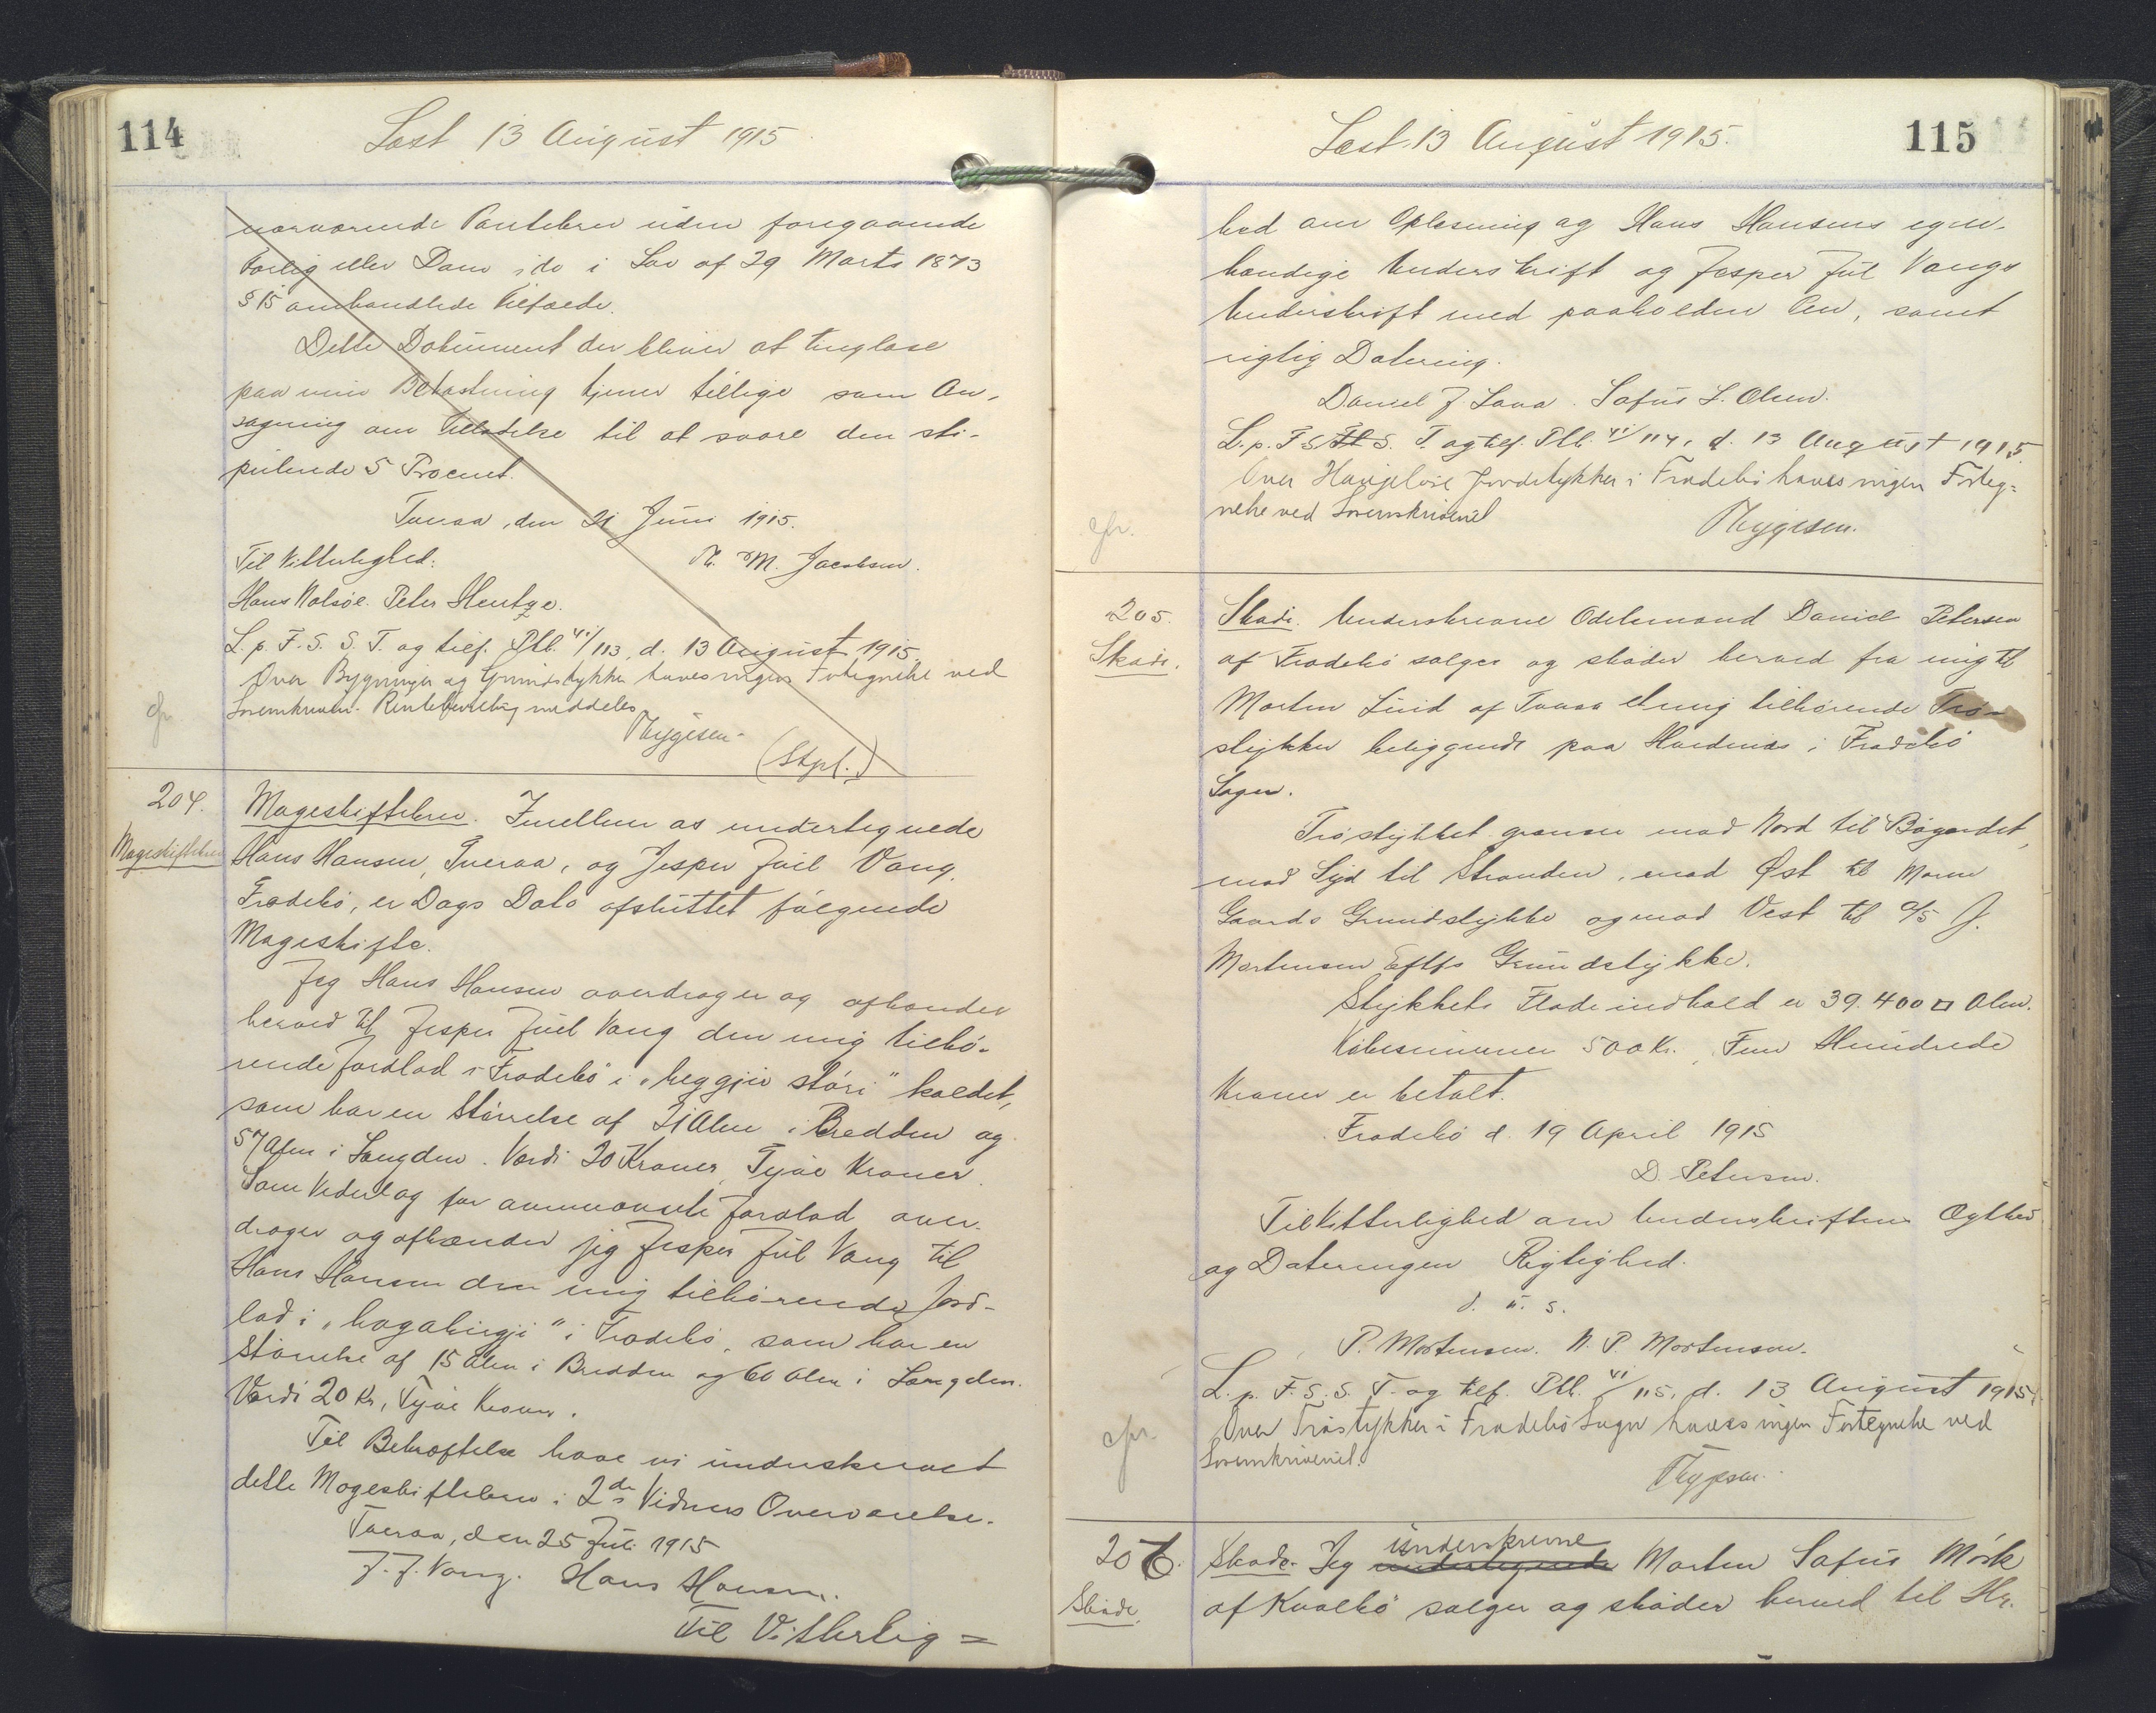 114
Læst 13 August 1915
nærværende Pantebrev uden foregaaende
Forlig eller Dom i de i Lov af 29 Marts 1873
§ 15 omhandlede Tilfælde.
Dette Dokument der bliver at tinglæse
paa min Bekostning tjener tillige som An-
søgning om Tilladelse til at svare den sti-
pulerede 5 Procent.
Tveraa, den 21 Juni 1915.
Til Vitterlighed: M. Jacobsen.
Hans Nolsøe. Peter Hentze.
L. p. F. S. S. T. og tilf. Ptb. VI/113, d. 13 August 1915.
Over Bygninger og Grundstykker haves ingen Fortegnelse ved
Sorenskriveri. Rentebevilling meddeles
Thygesen
(Stpl.)
cfr.
204.
Mageskiftebrev
Mageskiftebrev. Imellem os undertegnede
Hans Hansen, Tveraa, og Jesper Juil Vang,
Frodebø, er Dags Dato afsluttet følgende
Mageskifte.
Jeg Hans Hansen overdrager og afhænder
herved til Jesper Juel Vang den mig tilhø-
rende Jordlod i Frodebø i „heggjio støri" kaldet,
som har en Størrelse af 21 Alen i Bredden og
57 Alen i Længden. Værdi 20 Kroner, Tyve Kroner.
Som Vederlag for ommeldte Jordlod over-
drager og afhænder jeg Jesper Jul Vang til
Hans Hansen den mig tilhørende Jord-
lod i „hagabirgji" i Frodebø, som har en
Størrelse af 15 Alen i Bredden og 60 Alen i Længden.
Værdi 20 Kr, Tyve Kroner.
Til Bekræftelse have vi underskrevet
dette Mageskiftebrev i 2de Vidners Overværelse.
Tveraa, den 25 Juli 1915
J. J. Vang. Hans Hansen.
Til Vitterlig=
Læst 13 August 1915.
115
hed om Oplæsning og Hans Hansens egen-
hændige Underskrift og Jesper Jul Vangs
Underskrift med paaholden Pen, samt
rigtig Datering.
Daniel J. Lava. Sofus L. Olsen.
L. p. F S S. T. og tilf. Ptb. VI/114, d. 13 August 1915.
Over Haugeløse Jordstykker i Frodebø haves ingen Forteg=
nelse ved Sorenskriveriet
Thygesen.
cfr.
205.
Skøde.
Skøde. Underskrevne Odelsmand Daniel Petersen
af Frodebø sælger og skøder herved fra mig til
Morten Lüid af Tveraa et mig tilhørende Trø-
stykker beliggende paa Hordenes i Frodebø
Sogn.
Trøstykket grænser mod Nord til Bøgærdet,
mod Syd til Stranden, mod Øst til
Gaards Grundstykke og mod Vest til A/S J.
Mortensen Eftfs Grundstykke.
Stykkets Fladeindhold er 39.400 □ Alen.
Købesummen 500 Kr., Fem Hundrede
Kroner er betalt.
Frodebø d. 19 April 1915
D. Petersen.
Til Vitterlighed om Underskriftens Ægthed
og Dateringen Rigtighed.
d. u. s.
P. Mortensen. N. P. Mortensen.
L. p. F. S. S. T. og tilf. Ptb. VI/115, d. 13 August 1915.
Over Trøstykker i Frodebø Sogn haves ingen Fortegnelse ved
Sorenskriveriet.
Thygesen.
cfr.
206.
Skøde.
underskrevne
Skøde. Jeg undertegnede Morten Sofus Mörk
af Kvalbø sælger og skøder herved til Hr.